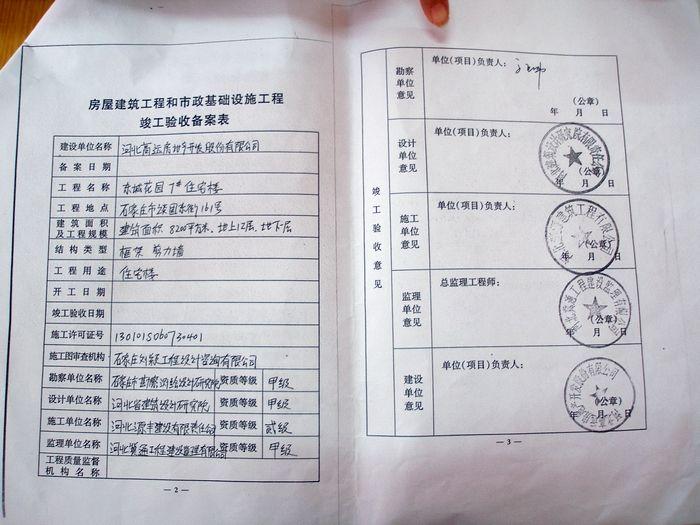 房屋建筑工程和市政基础设施工程
竣工验收备案表
建设单位名称 河北高远房地产开发股份有限公司
备案日期
工程名称 东城花园 7# 住宅楼
工程地点 石家庄市 街161号
建筑面积及工程规模 建筑面积 8200平方米、地上12层、地下层
结构类型 框架 剪力墙
工程用途 住宅楼
开工日期
竣工验收日期
施工许可证号 130101S060730401
施工图审查机构 石家庄 工程设计咨询有限公司
勘察单位名称 石家庄市勘察测绘设计研究院 资质等级 甲级
设计单位名称 河北省建筑设计研究院 资质等级 甲级
施工单位名称 河北源丰建设有限责任公司 资质等级 贰级
监理单位名称 河北冀通工程建设监理有限公司 资质等级 甲级
工程质量监督机构名称
— 2 —
竣工验收意见
勘察单位意见
单位(项目)负责人：
（公章）
年 月 日
设计单位意见
单位(项目)负责人：
年 月 日
施工单位意见
单位(项目)负责人：
（公章）
年 月 日
监理单位意见
总监理工程师：
（公章）
年 月 日
建设单位意见
单位(项目)负责人：
（公章）
年 月 日
— 3 —